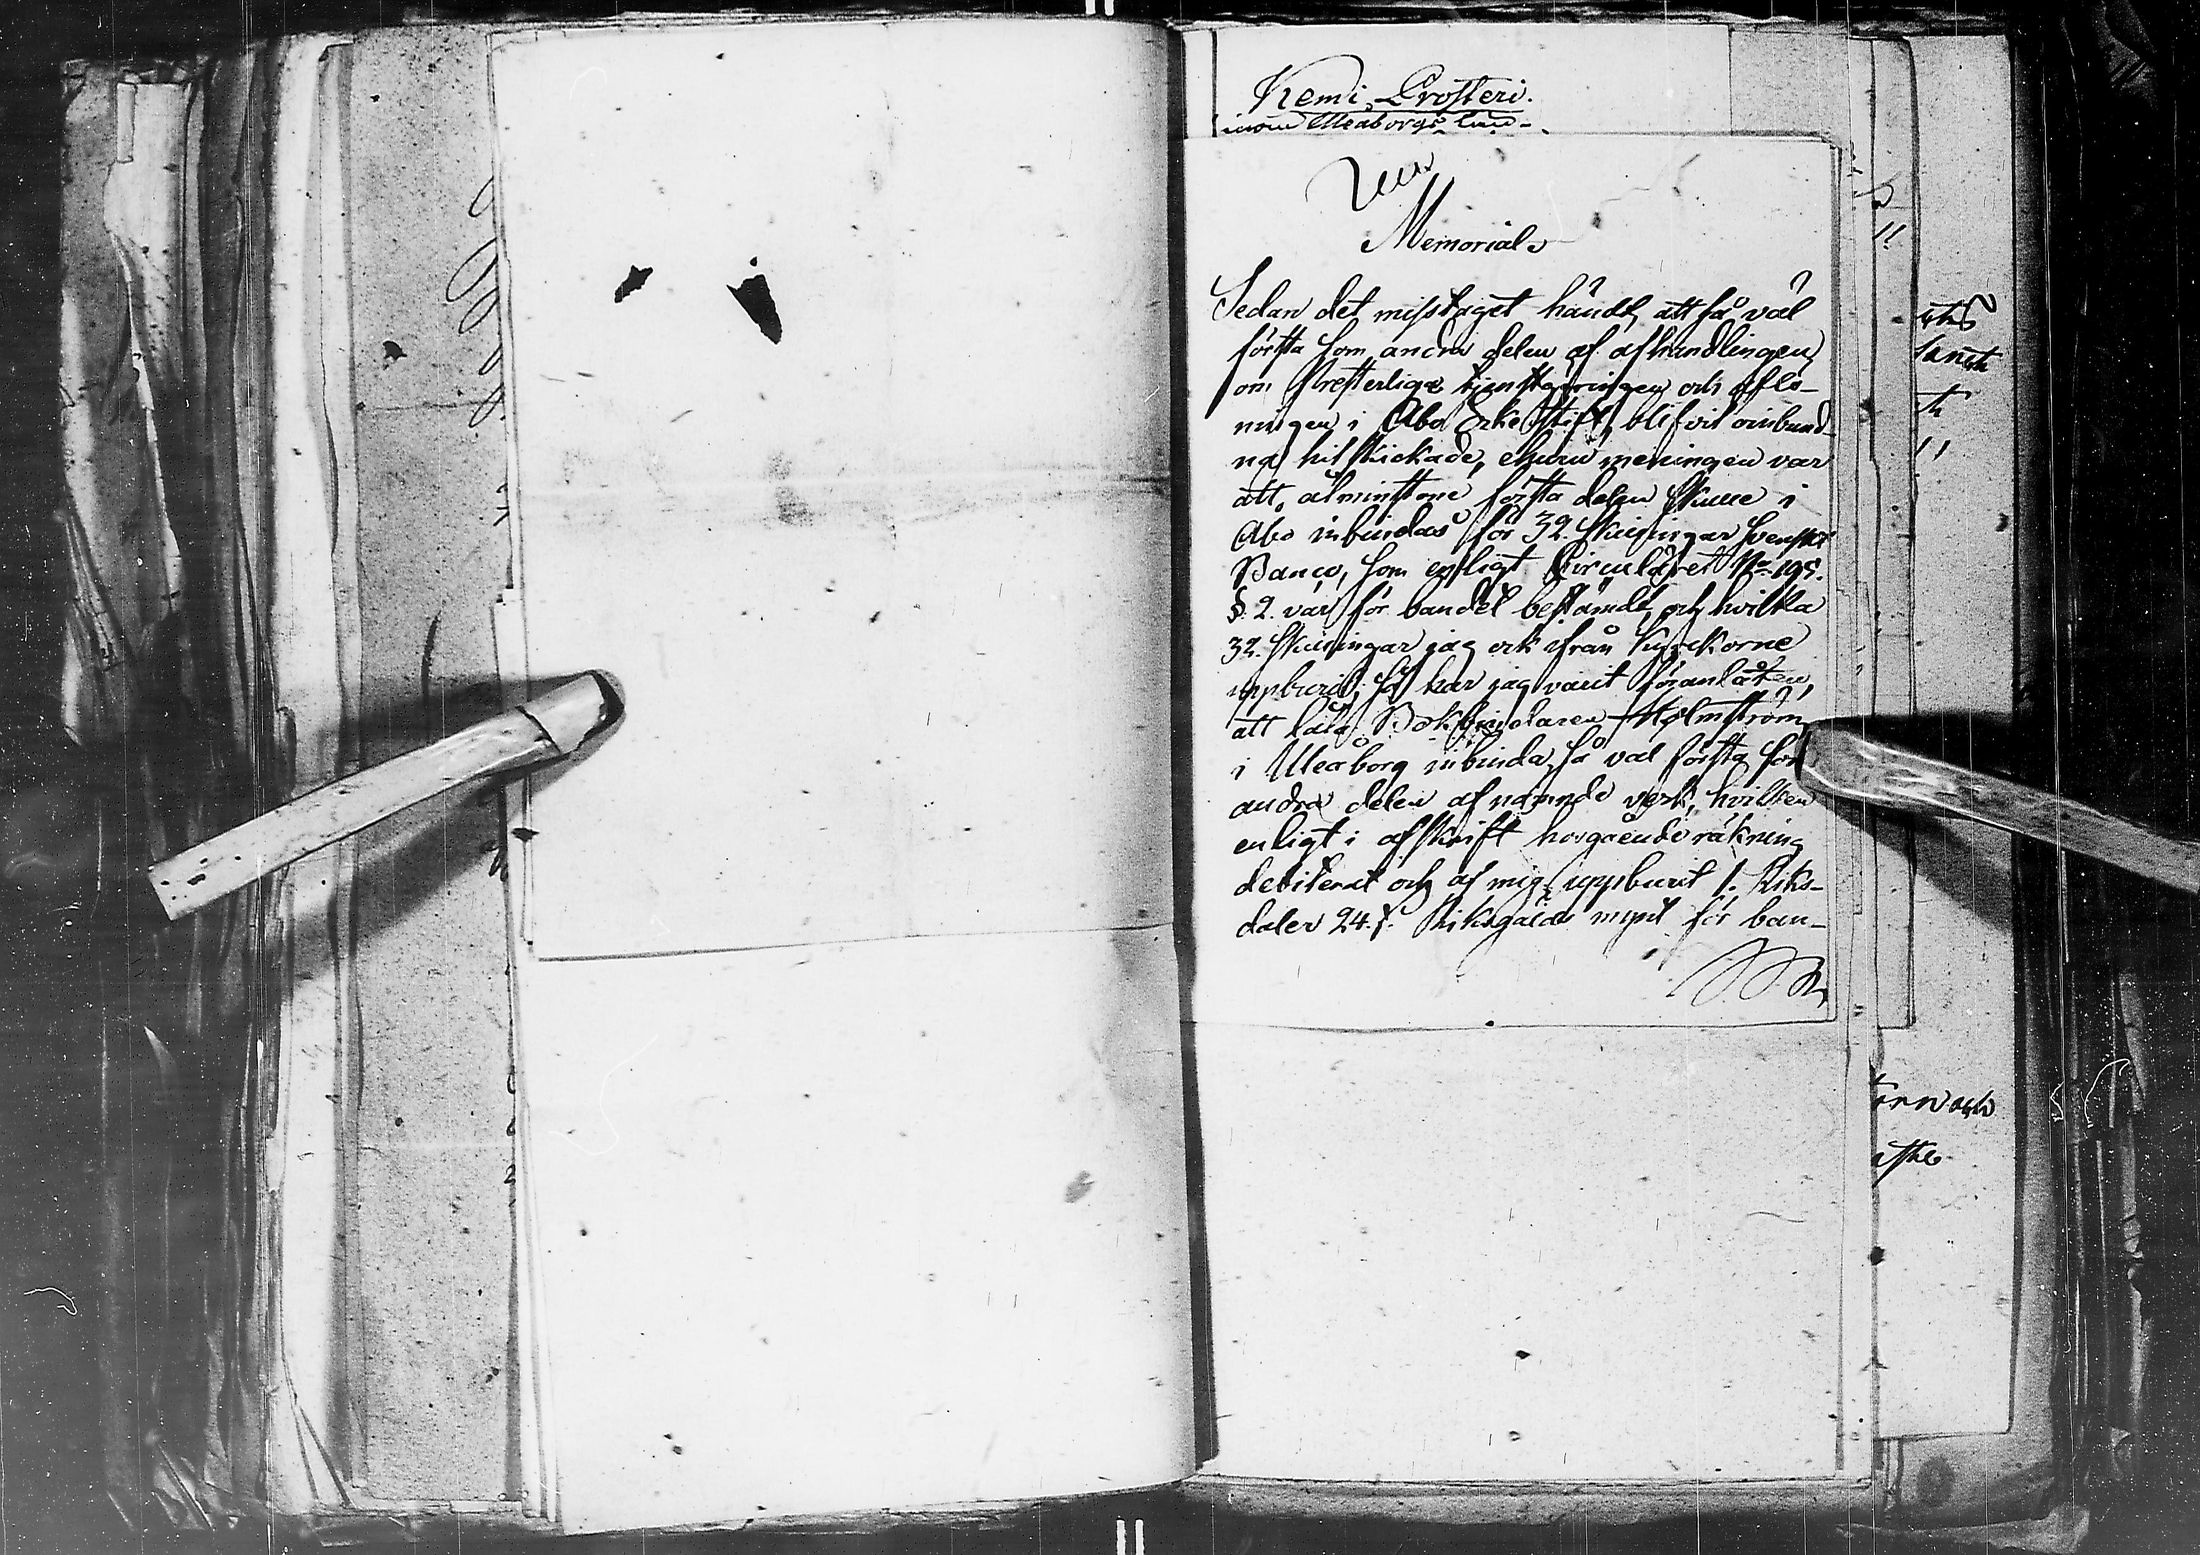 Kemi Prosteri.
inom Uleaborgs län
Memorial
Sedan det misstaget händt, att så väl
första som andra delen af afhandlingen
om Presterliga tjenstgöringen och aflö-
ningen i Åbo Erke Stift, blifvit oinbund-
na hitskickade, ehuru meningen var
att, åtminstone första delen skulle i
Åbo inbindas för 32. skillingar svenskt
Banco, som enligt Circuläret No 195.
§. 2. var för bandet bestämdt, och hvilka
32. skillingar jag ock ifrån kyrkorne
uppburit; så har jag varit föranlåten,
att låta Bokbindaren Holmström
i Uleåborg inbinda så väl första som
andra delen af nämnde verk, hvilken
enligt i afskrift hosgående räkning
debiterat och af mig uppburit 1. Riks-
daler 24. s. Riksgälds mynt för ban-